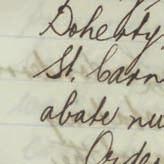 Doherty
St. Carn
abate nu
Orde